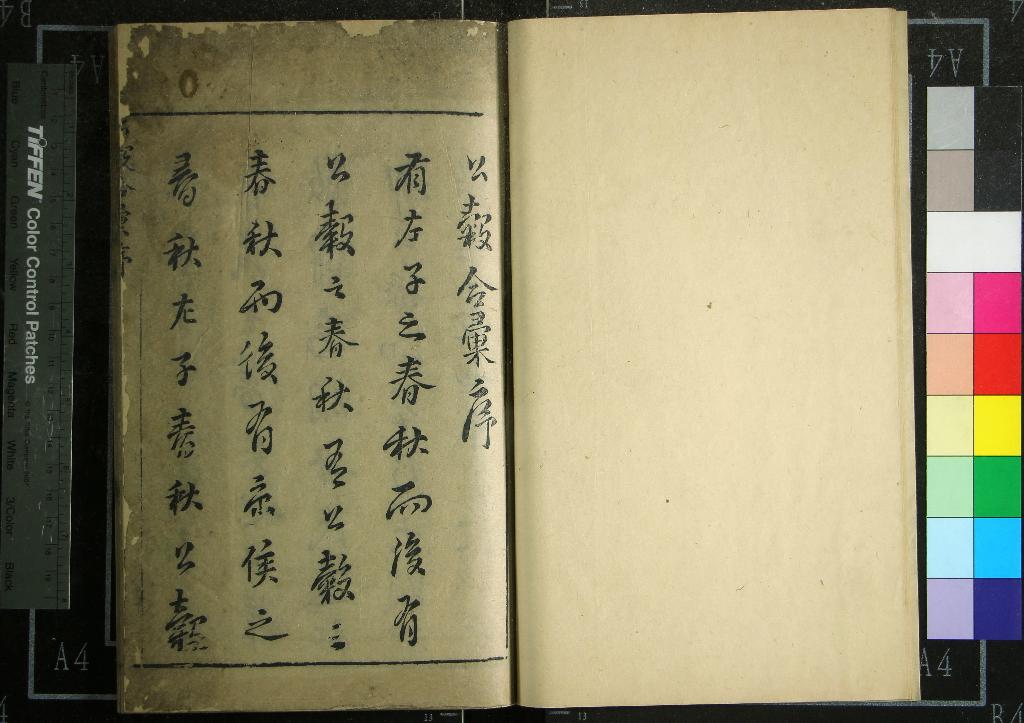 公糓合彙序
有左子之春秋而後有
公糓之春秋有公糓之
春秋而後有宗侯之
春秋左子春秋公糓
TIFFEN Color Control Patches
Blue Cyan Green Yellow Red Magenta White 3/Color Black
A4
A4
A4
A4